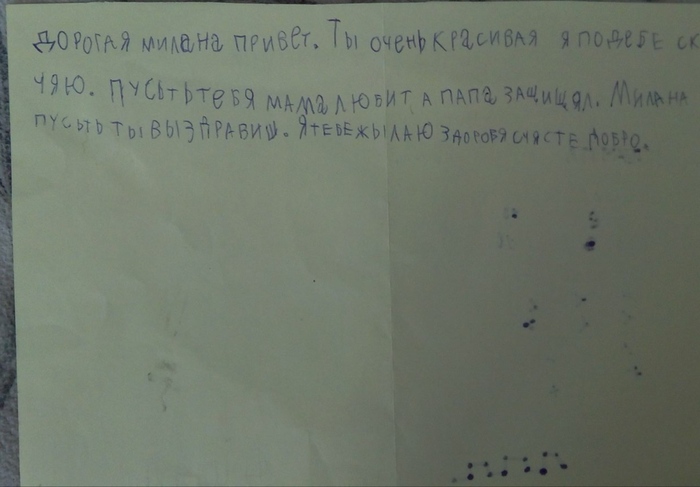 ДОРОГАЯ МИЛАНА ПРИВЕТ. ТЫ ОЧЕНЬ КРАСИВАЯ Я ПОДЕБЕ СК
ЧЯЮ. ПУСЬТЬ ТЕБЯ МАМА ЛЮБИТ А ПАПА ЗАЩИЩЯЛ. МИЛАНА
ПУСЬТЬ ТЫ ВЫЗДРАВИШ. Я ТЕБЕ ЖЫЛАЮ ЗДОРОВЯ СЧЯСТЕ ДОБРО.